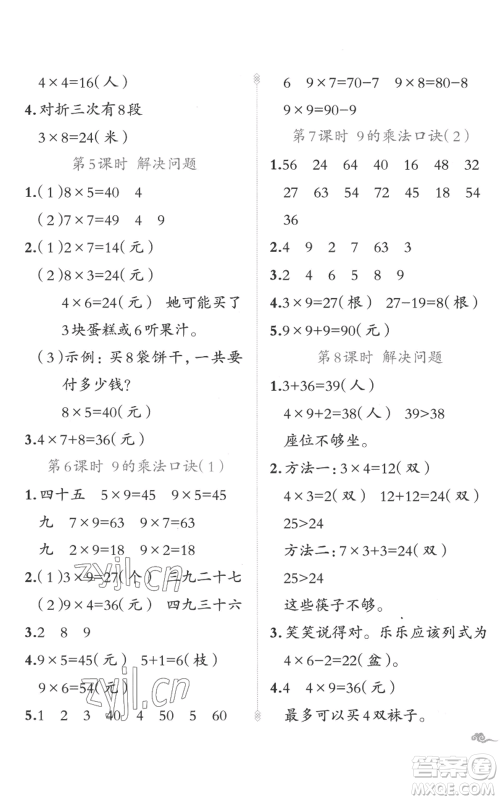 4×4=16(人)
4.对折三次有8段
3×8=24(米)
第5课时 解决问题
1.(1)8×5=40 4
(2)7×7=49 4 9
2.(1)2×7=14(元)
(2)8×3=24(元)
4×6=24(元) 她可能买了
3块蛋糕或6听果汁。
(3)示例：买8袋饼干，一共要
付多少钱？
8×5=40(元)
3.4×7+8=36(元)
第6课时 9的乘法口诀(1)
1.四十五 5×9=45 9×5=45
九 7×9=63 9×7=63
九 2×9=18 9×2=18
2.(1)3×9=27(个) 三九二十七
(2)4×9=36(元) 四九三十六
3.2 8 9
4.9×5=45(元) 5+1=6(枝)
9×6=54(元)
5.1 2 3 90 4 50 5
6 9×7=70-7 9×8=80-8
9×9=90-9
第7课时 9的乘法口诀(2)
1.56 24 64 40 16 48 32
27 63 54 72 18 45 54
36
2.4 9 7 8 63 3
3.2 4 6 5 8 9
4.3×9=27(根) 27-19=8(根)
5.9×9+9=90(元)
第8课时 解决问题
1.3+36=39(人)
4×9+2=38(人) 39>38
座位不够坐。
2.方法一：3×4=12(双)
4×3=12(双) 12+12=24(双)
25>24
方法二：7×3+3=24(双)
25>24
这些筷子不够。
3.笑笑说得对。乐乐应该列式为
4×6-2=22(盆)。
4.4 4×9=36(元)
最多可以买4双袜子。
zyjl.cn
zyjl.cn
答案圈
MXQE.COM